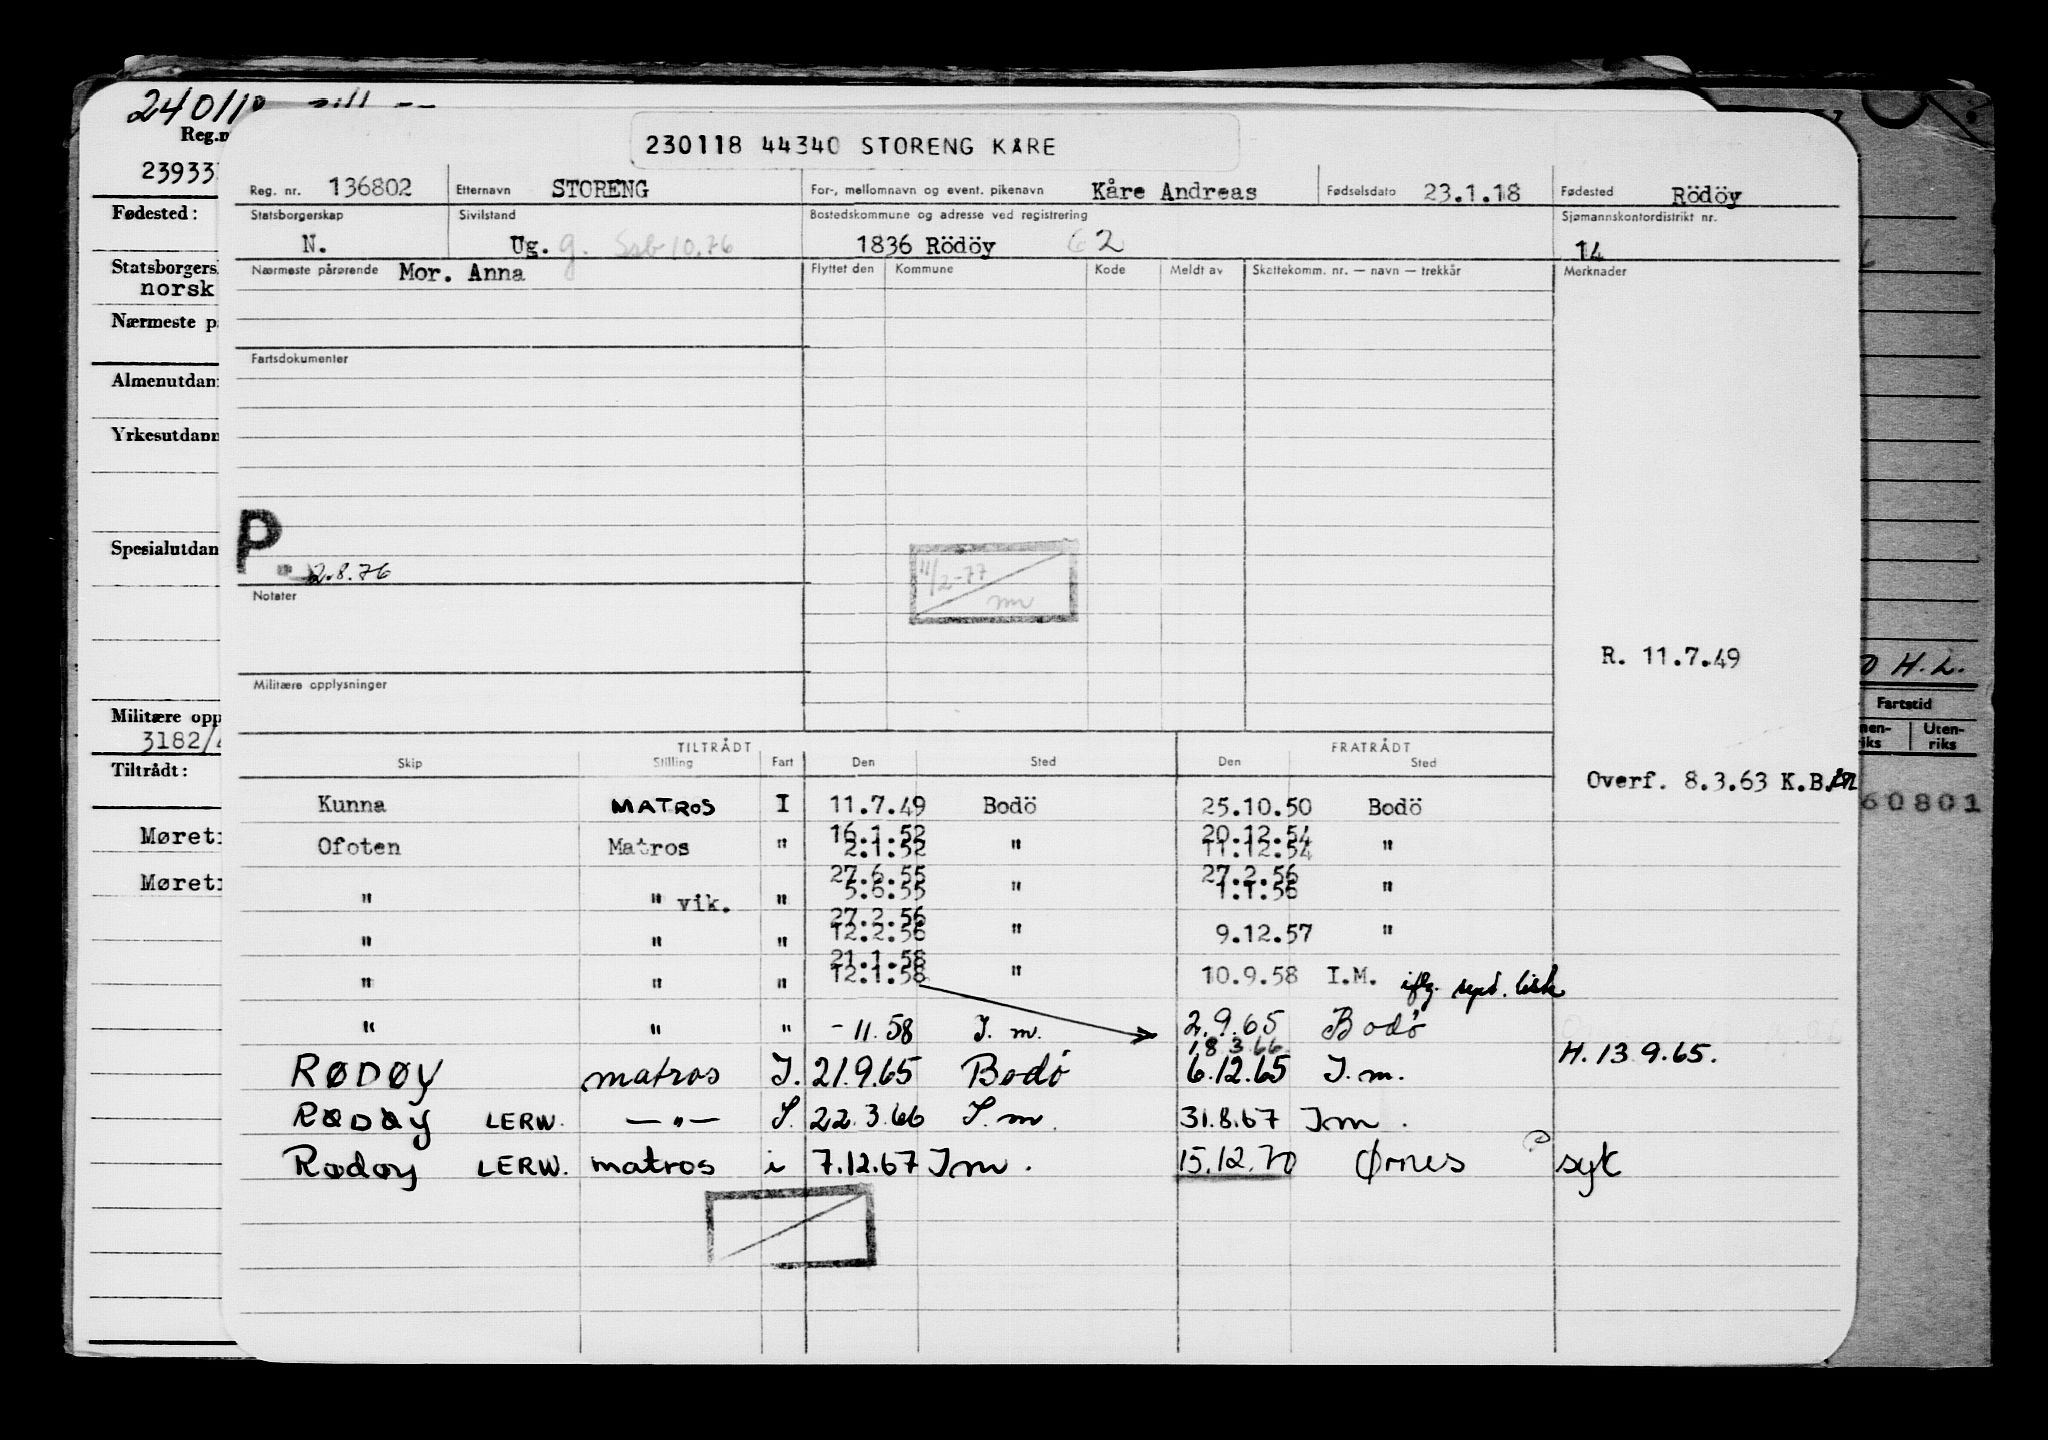 230118 44340 STORENG KÅRE
Reg. nr. 136802 Etternavn STORENG For-, mellomnavn og event. pikenavn Kåre Andreas Fødselsdato 23.1.18 Fødested Rödöy
Statsborgerskap Sivilstand Bostedskommune og adresse ved registrering Sjømannskontordistrikt nr.
N. Ug. g. Ssb 10.76 1836 Rödöy 62 14
Nærmeste pårørende Mor. Anna Flyttet den Kommune Kode Meldt av Skattekomm. nr. — navn — trekkår Merknader
Fartsdokumenter
P
2.8.76
11/2-77
Notater
R. 11.7.49
Militære opplysninger
TILTRÅDT FRATRÅDT
Skip Stilling Fart Den Sted Den Sted
Overf. 8.3.63 K.B.
Kunna MATROS I 11.7.49 Bodö 25.10.50 Bodö
16.1.52 20.12.54
Ofoten Matros " 2.1.52 " 11.12.54 "
27.6.55 27.2.56
" " vik. " 5.6.55 " 1.1.56 "
27.2.56
" " " 12.2.56 " 9.12.57 "
21.1.58
" " " 12.1.58 " 10.9.58 I.M. iflg.
" " " - 11.58 I.m. 2.9.65 Bodø
18.3.66
H. 13 9.65.
RØDØY matros I. 21.9.65 Bodø 6.12.65 I.m.
RØDØY LERW. —"— I. 22.3.66 I.m. 31.8.67 Im.
Rødøy LERW. matros i 7.12.67 Im. 15.12.70 Ørnes syk
Reg.n
23933
Fødested:
Statsborgersk
norsk
Nærmeste på
Almenutdan
Yrkesutdann
Spesialutdan
Militære opp
3182/
Tiltrådt:
Møret
Møret
H. L.
Fartstid
nen-
riks
Uten-
riks
60801